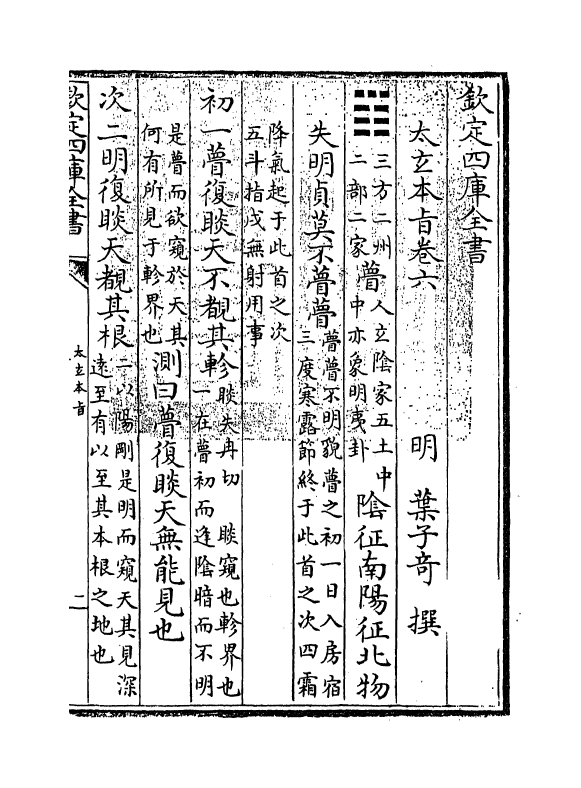 欽定四庫全書
太玄本旨卷六　明　葉子奇　撰
三方二州
二部二家
瞢
人玄陰家五土中
中亦象明夷卦
陰征南陽征北物
失明貞莫不瞢瞢
瞢瞢不明貌瞢之初一日入房宿
三度寒露節終于此首之次四霜
降氣起于此首之次
五斗指戌無射用事
初一瞢復睒天不覩其軫
睒失冉切　睒窺也軫界也
一在瞢初而逢陰暗而不明
是瞢而欲窺於天其
何有所見于軫界也
測曰瞢復睒天無能見也
次二明復睒天覩其根
二以陽剛是明而窺天其見深
遠至有以至其本根之地也
欽定四庫全書
太玄本旨